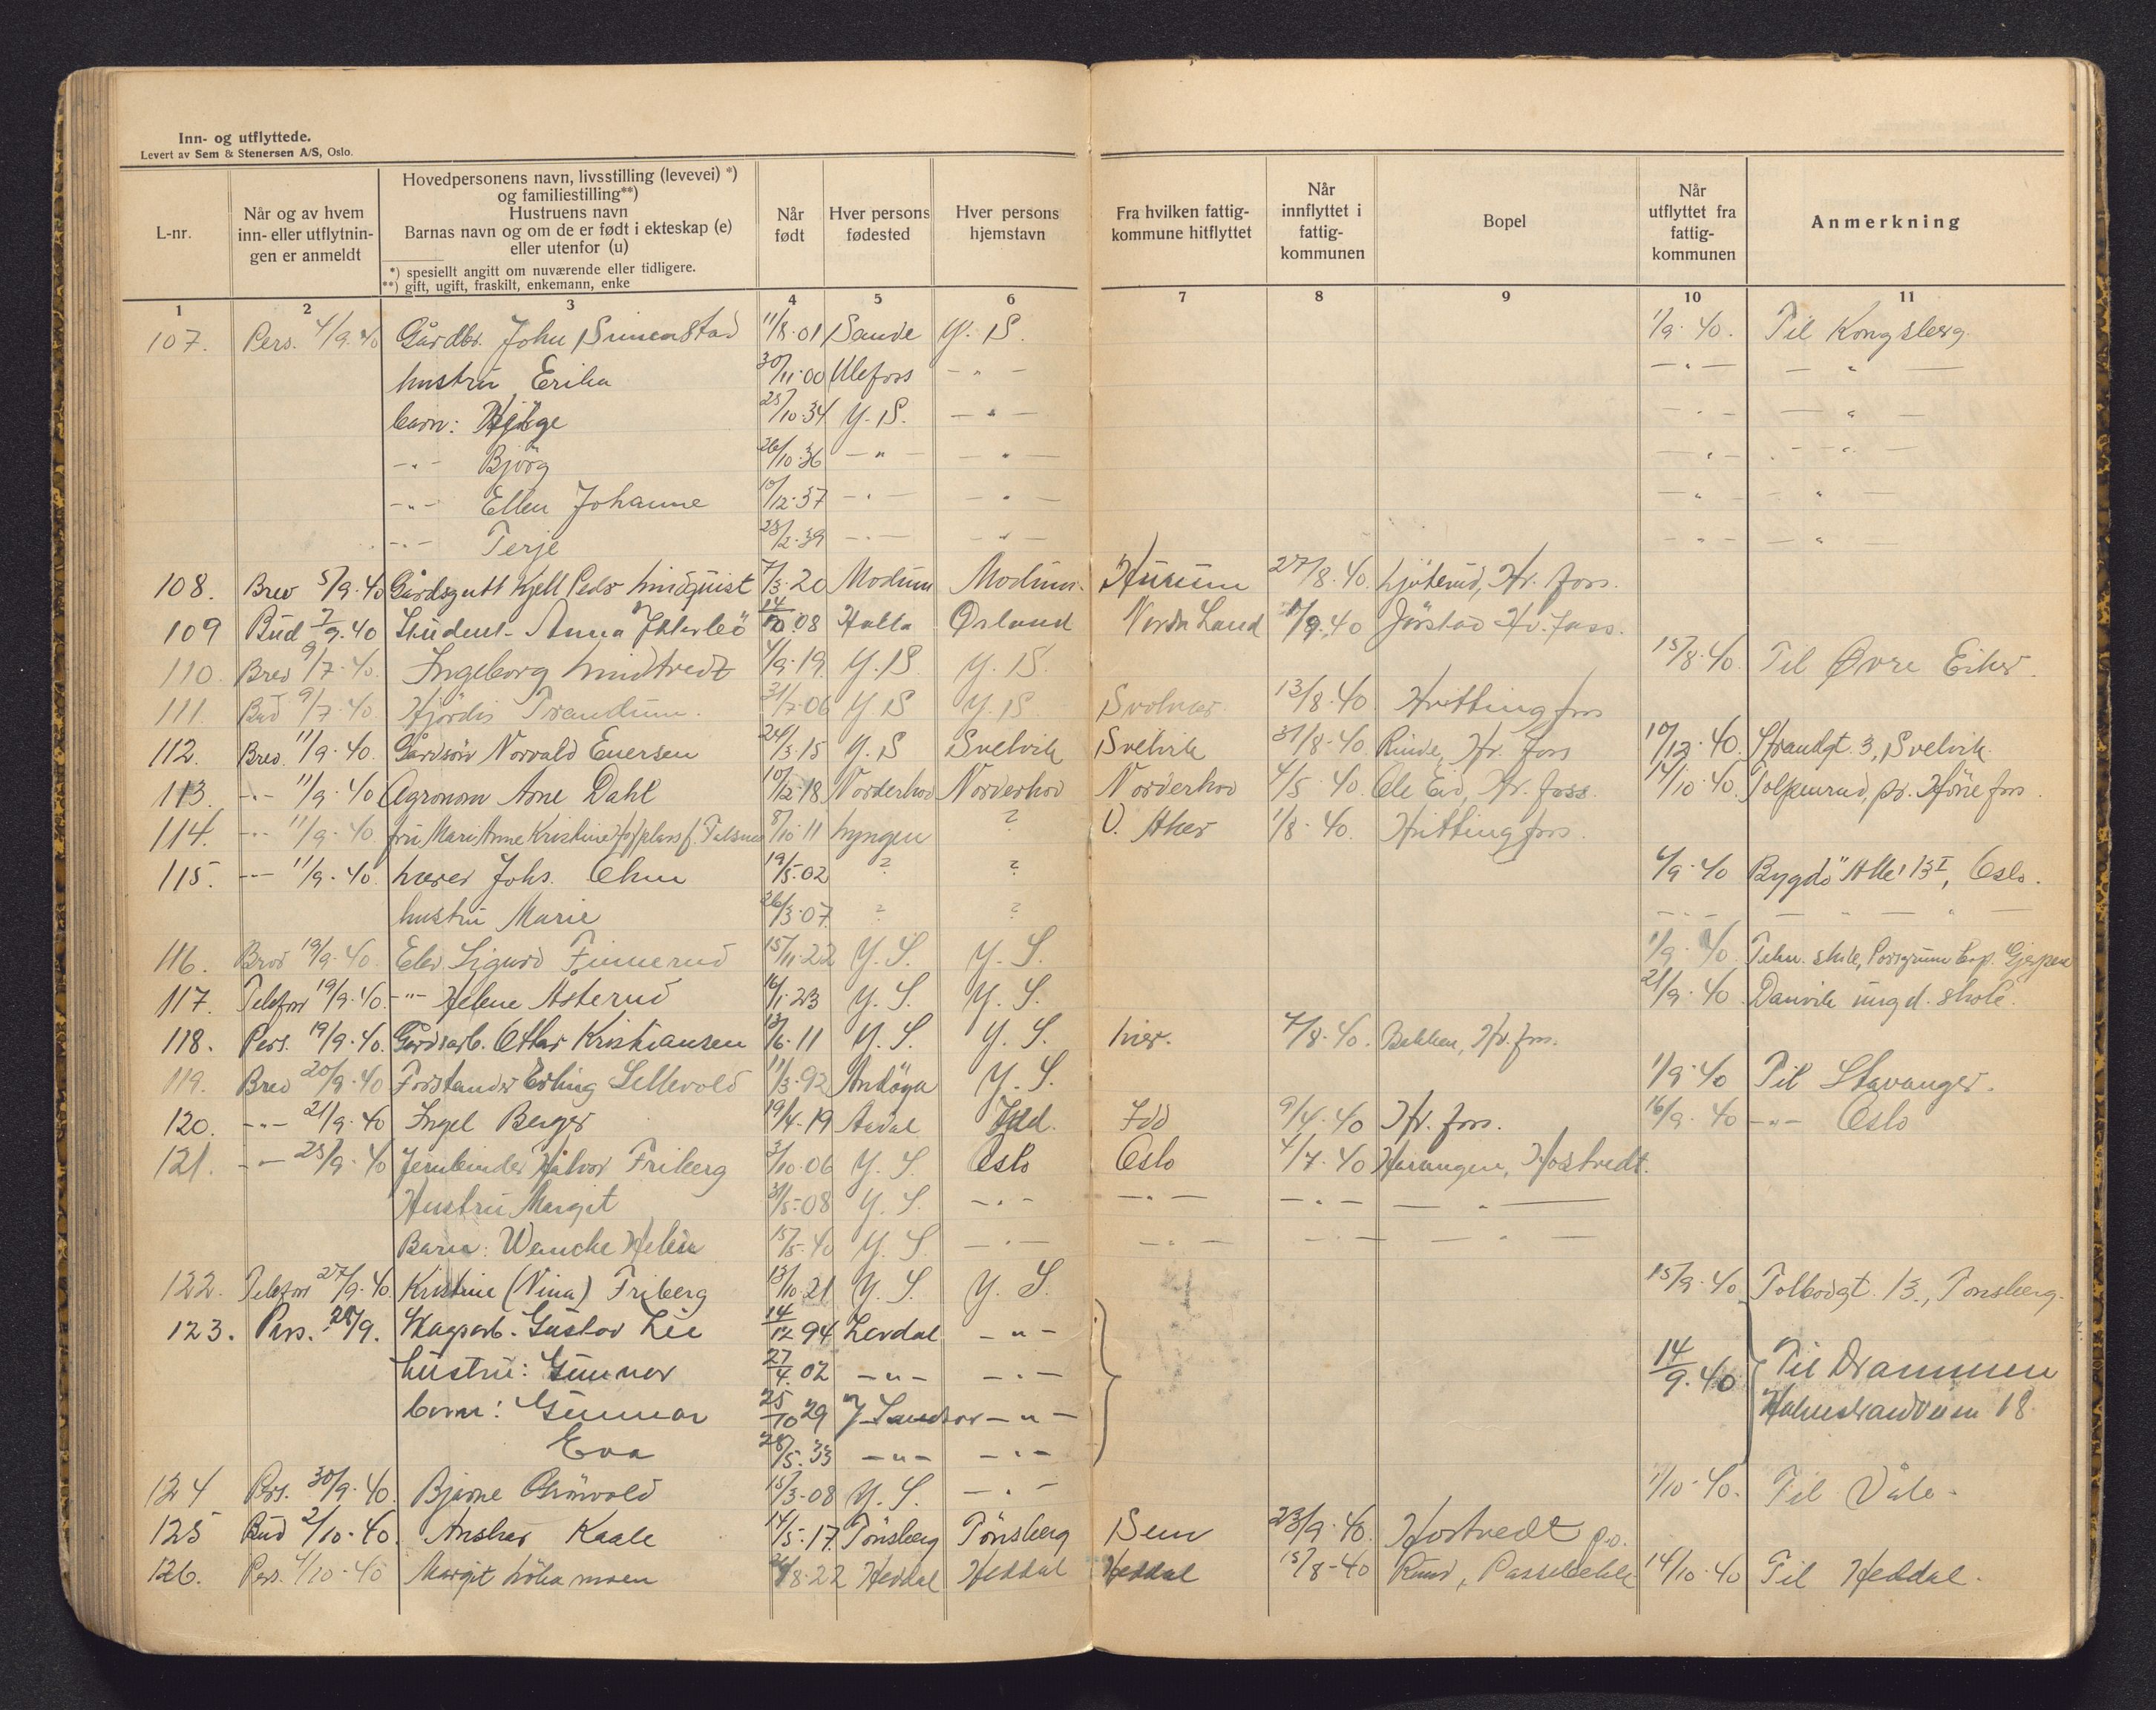 Inn- og utflyttede.
Levert av Sem & Stenersen A/S, Oslo.
L-nr.
Når og av hvem inn- eller utflytnin-gen er anmeldt
Hovedpersonens navn, livsstilling (levevei) *) og familiestilling**)
Hustruens navn
Barnas navn og om de er født i ekteskap (e) eller utenfor (u)
*) spesiellt angitt om nuværende eller tidligere.
**) gift, ugift, fraskilt, enkemann, enke
Når født
Hver persons fødested
Hver persons hjemstavn
Fra hvilken fattig-kommune hitflyttet
Når innflyttet i fattig-kommunen
Bopel
Når utflyttet fra fattig-kommunen
Anmerkning
1 2 3 4 5 6 7 8 9 10 11
107. Pers. 4/9.40 Gårdbr. John Simenstad 11/8.01 Sande Y. S. 1/9.40. Til Kongsberg.
hustru Erika 30/11.00 Ulefoss - " - - " - - " -
barn: Helge 25/10.34 Y. S. - " - - " - - " -
- " - Bjørg 26/10.36 - " - - " - - " - - " -
- " - Ellen Johanne 10/12.37 - " - - " - - " - - " -
- " - Terje 28/2.39 - " - - " - - " - - " -
108. Brev 5/9.40 Gårdsgutt Kjell Peder Lindquist 7/3.20 Modum Modum. Hurum 27/8.40. Hv. foss.
109 Bud 7/9.40 Student- Anna 14/10.08 Halla Ørland Nordre Land 1/9.40 Jårstad Hv. foss.
110. Brev 9/7.40. Ingeborg Lindtvedt 4/9.19. Y. S. Y. S. 15/8.40. Til Øvre Eiker.
111. Bud 9/7.40. Hjördis Trandum. 31/7.06 Y S Y. S. Svolvær. 13/8.40. Hvittingfoss
112. Brev. 11/9.40. Gårdsarb Norvald Eversen 24/3.15 Y. S Svelvik Svelvik 31/8.40. Rinde, Hv. foss 10/12.40. Strandgt. 3, Svelvik.
113. - " - 11/9.40 Agronom Arne Dahl 10/2.18 Norderhov Norderhov Norderhov 4/5.40. Ole Eid, Hv. foss. 14/10.40. pr. Hönefoss.
114. - " - 11/9.40. fru Mari Anne Kristine 8/10.11 Lyngen ? V. Aker 1/8.40. Hvittingfoss.
115. - " - 11/9.40. Lærer Johs. 19/5.02 ? ? 6/9.40 Bygdö Alle 13 I, Oslo.
hustru Marie 26/3.07. ? ? - " - - " - " -
116. Brev 19/9.40. Elev Sigurd Finnerud 15/11.22 Y. S. Y. S. 1/9.40. Tekn. skole, Porsgrunn Gjerpen
117. Telefon 19/9.40. - " - Helene Asterud 16/1.23 Y. S. Y. S. 21/9.40. Danvik ungd. skole.
118. Pers. 19/9.40. Gårdsarb. Ottar Kristiansen 13/6.11 Y. S. Y. S. her. 7/8.40. Bakken, Hv. foss.
119. Brev 20/9.40 Forstander Erling Sellevold 11/3.92 Andöya Y. S. 1/9.40 Til Stavanger.
120. - " - 21/9.40 Ingel Berger 19/4.19 Idd. Idd 9/4.40 Hv. foss. 16/9.40 - " - Oslo
121. - " - 25/9.40 Jernbinder Halvor Friberg 3/10.06 Y. S. Oslo Oslo 4/7.40 Hostvedt.
Hustru Margit 31/5.08 Y. S. - " - - " - - " - - " -
Barn: Wenche Helen 15/5.40 Y. S. - " - - " - - " - - " -
122. Telefon 27/9.40. Kristine (Nina) Friberg 13/10.21 Y. S. Y. S. 15/9.40. Tolbodgt. 13., Tönsberg.
123. Pers. 28/9. Skogsarb. Gustav Lie 14/12 94 Lardal - " -
hustru: Gunnor 27/4.02 - " - - " - 14/9.40 Til Drammen
barn: Gunnar 25/10 29 Y. Sandsvær - " - Holmestrandveien 18.
Eva 28/5.33 - " - - " -
124 Pers. 30/9.40. Bjarne Grönvold 15/3.08 Y. S. - " - 1/10.40. Til Våle.
125 Bud 2/10.40. Anskar Kaale 14/5.17. Tönsberg Tönsberg Sem 23/9.40. Hostvedt p.o.
126. Pers. 4/10.40 Margit 8.22 Heddal Heddal Heddal 15/8-40 Ruud, Passebekk 14/10.40 Til Heddal.